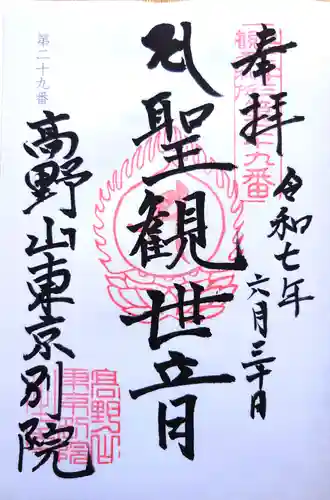 奉拝
令和七年
六月三十日
聖観世音
第二十九番
高野山東京別院
高野山